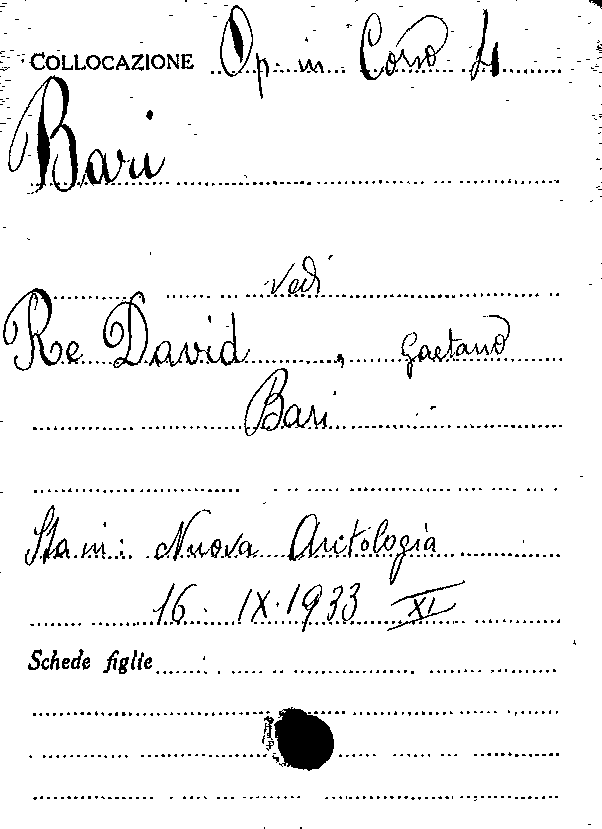 COLLOCAZIONE Op. in Corso 4
Bari
vedi
Re David, Gaetano
Bari
Sta in: Nuova Antologia
16. IX. 1933 XI
Schede figlie